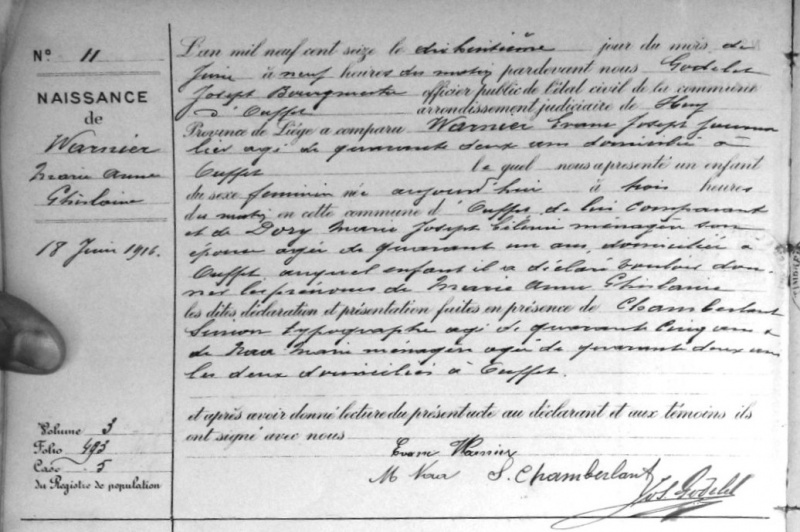 N° 11
NAISSANCE
de
Warnier
Marie Anne
Ghislaine
18 Juin 1916.
Volume 3
Folio 493
Case 5
du Registre de population
L'an mil neuf cent seize le dixhuitième jour du mois de
Juin à neuf heures du matin pardevant nous Godelet
Joseph Bourgmestre officier public de l'état civil de la commune
d'Ouffet arrondissement judiciaire de Huy
Province de Liège a comparu Warnier Evam Joseph Journa
lier agé de quarante deux ans domicilié à
Ouffet lequel nous a présenté un enfant
du sexe feminin née aujourd'hui à trois heures
du matin en cette commune d'Ouffet, de lui comparant
et de Dory Marie Joseph ménagère son
épouse agée de quarante un ans, domiciliée à
Ouffet, auquel enfant il a déclaré vouloir don-
ner les prénoms de Marie Anne Ghislaine
les dites déclaration et présentation faites en présence de Chamberlant
Simon typographe agé de quarante cinq ans &
de Nax Marie ménagère agée de quarante deux ans
les deux domiciliés à Ouffet.
et après avoir donné lecture du présent acte au déclarant et aux témoins ils
ont signé avec nous
Evam Warnier
M S. Chamberlant
Jos Godelet